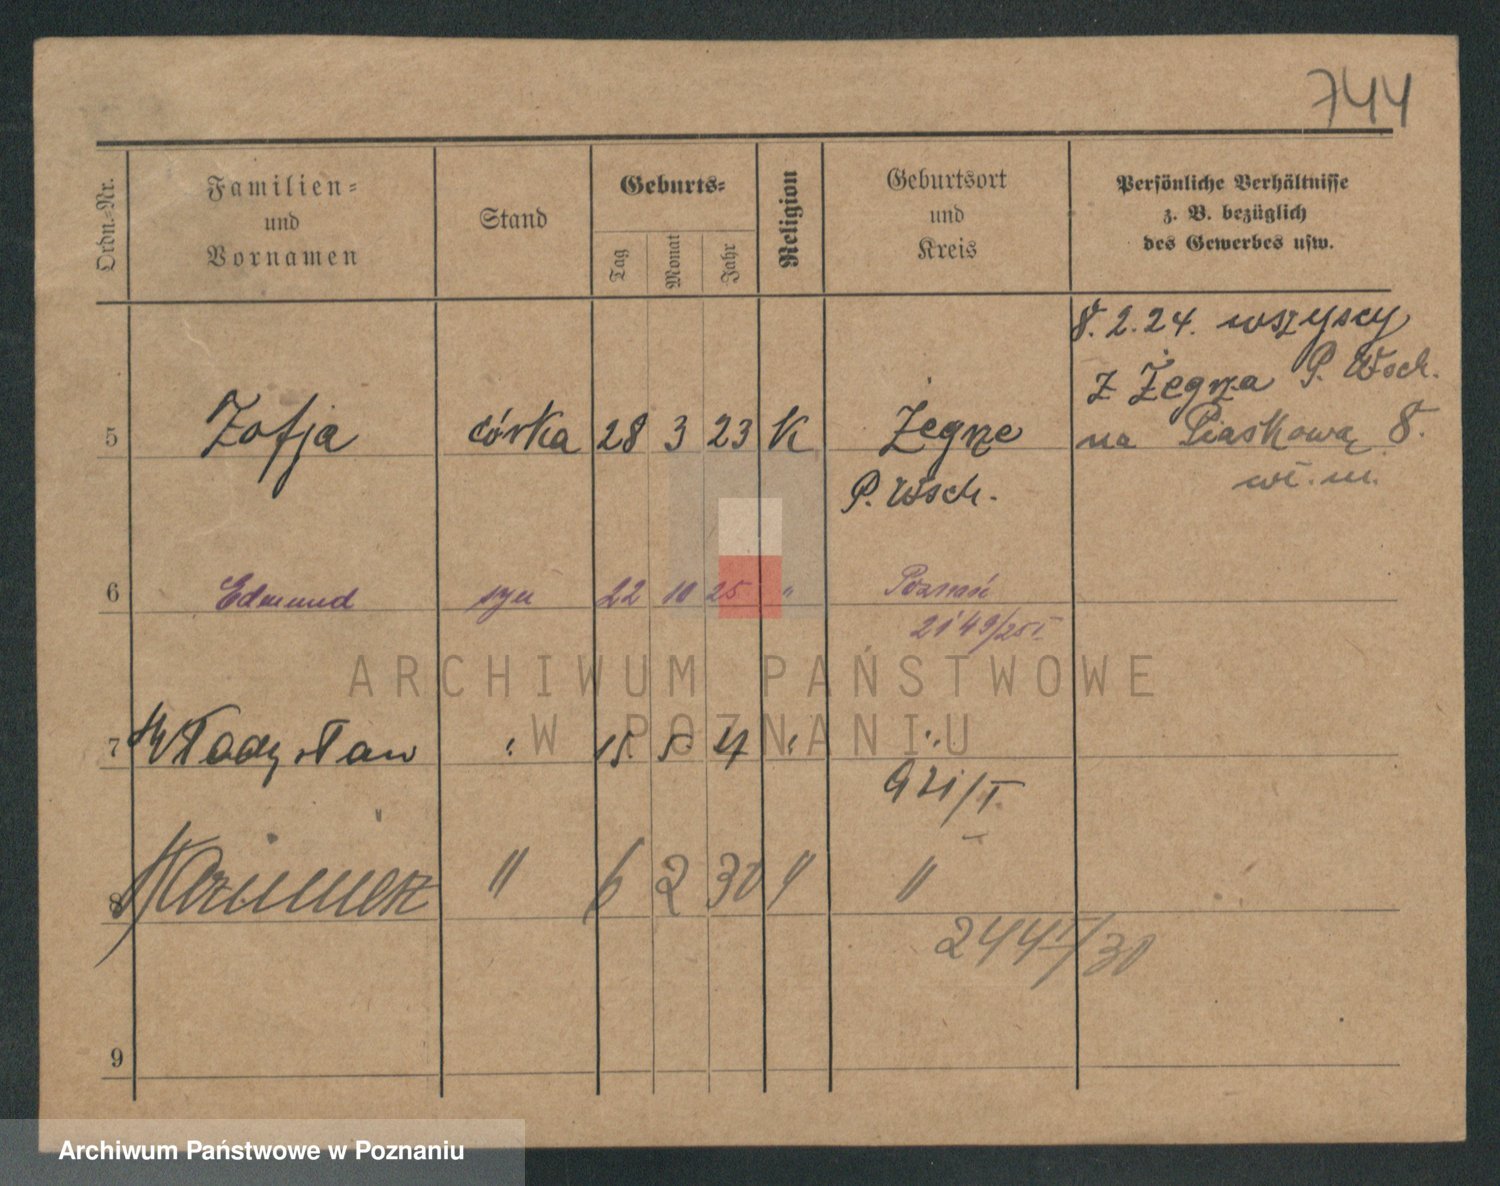 744
Ordn.-Nr.
Familien-
und
Vornamen
Stand
Geburts-
Tag
Monat
Jahr
Religion
Geburtsort
und
Kreis
Persönliche Verhältnisse
z. B. bezüglich
des Gewerbes usw.
8. 2. 24. wszyscy
z Żegrza P. Wsch.
na Piaskową 8.
wł. m.
5 Zofja córka 28 3 23 K Żegrze
P. Wsch.
6 Edmund syn 22 10 25 " Poznań
2149/25 I
ARCHIWUM PAŃSTWOWE
W POZNANIU
7 Władysław " 15. 5. "
921/I.
8 Kazimierz " 6 2 30 " "
244 I/30
9
Archiwum Państwowe w Poznaniu